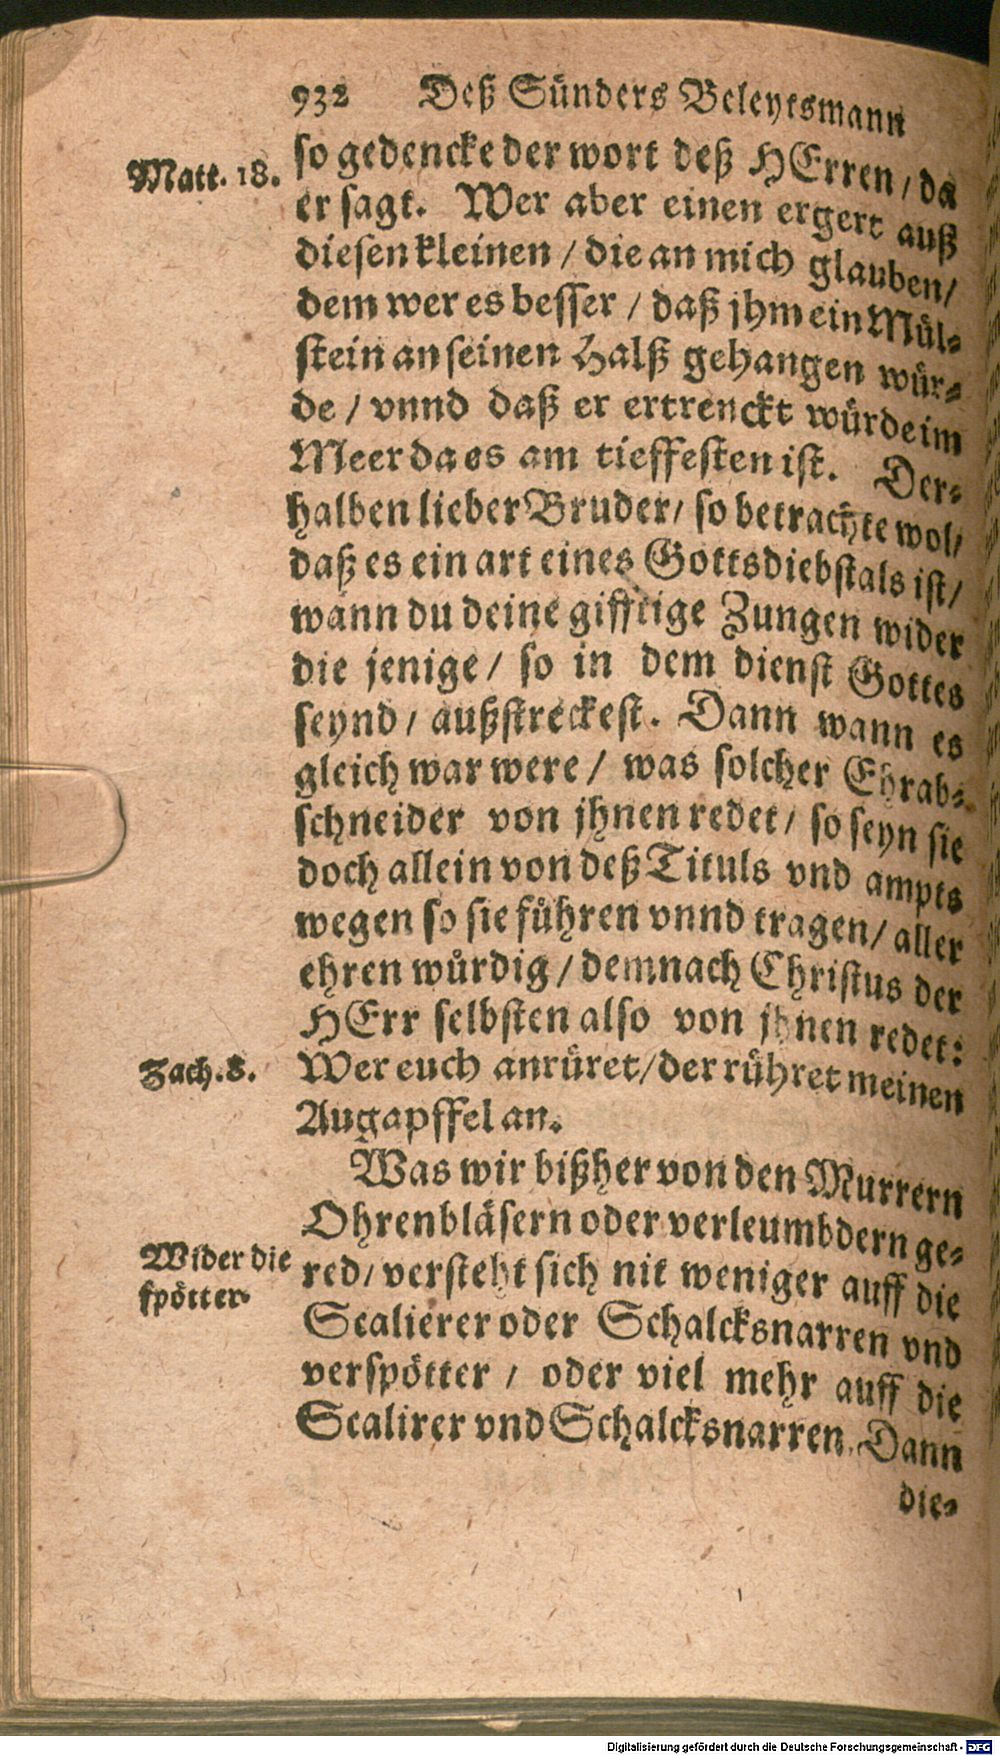 932 Deß Sünders Beleytsmann
Matt. 18.
so gedencke der wort deß HErren / da
er sagt. Wer aber einen ergert auß
diesen kleinen / die an mich glauben /
dem wer es besser / daß jhm ein Mül-
stein an seinen Halß gehangen wür-
de / vnnd daß er ertrenckt würde im
Meer da es am tieffesten ist. Der-
halben lieber Bruder / so betrachte wol /
daß es ein art eines Gottsdiebstals ist /
wann du deine gifftige Zungen wider
die jenige / so in dem dienst Gottes
seynd / außstreckest. Dann wann es
gleich war were / was solcher Ehrab-
schneider von jhnen redet / so seyn sie
doch allein von deß Tituls vnd ampts
wegen so sie führen vnnd tragen / aller
ehren würdig / demnach Christus der
HErr selbsten also von jhnen redet:
Zach. 8.
Wer euch anrüret / der rühret meinen
Augapffel an.
Was wir bißher von den Murrern
Ohrenbläsern oder verleumbdern ge-
Wider die
spötter.
red / versteht sich nit weniger auff die
Scalierer oder Schalcksnarren vnd
verspötter / oder viel mehr auff die
Scalirer vnd Schalcksnarren. Dann
die-
Digitalisierung gefördert durch die Deutsche Forschungsgemeinschaft - DFG